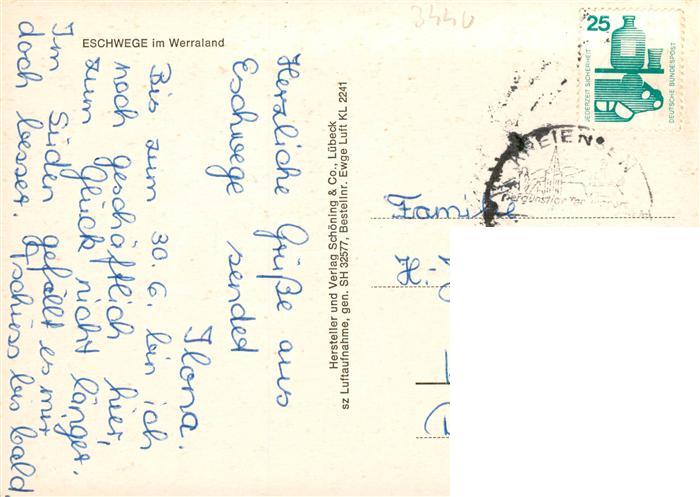 ESCHWEGE im Werraland
Herzliche Grüße aus
Eschwege sendet
Ilona.
Bis zum 30.6. bin ich
noch geschäftlich hier,
zum Glück nicht länger.
Im Süden gefällt es mir
doch besser. Tschüss bis bald
Hersteller und Verlag Schöning & Co., Lübeck
sz Luftaufnahme, gen. SH 32577, Bestellnr. Ewge Luft KL 2241
3440
25
JEDERZEIT SICHERHEIT
DEUTSCHE BUNDESPOST
Familie
H.